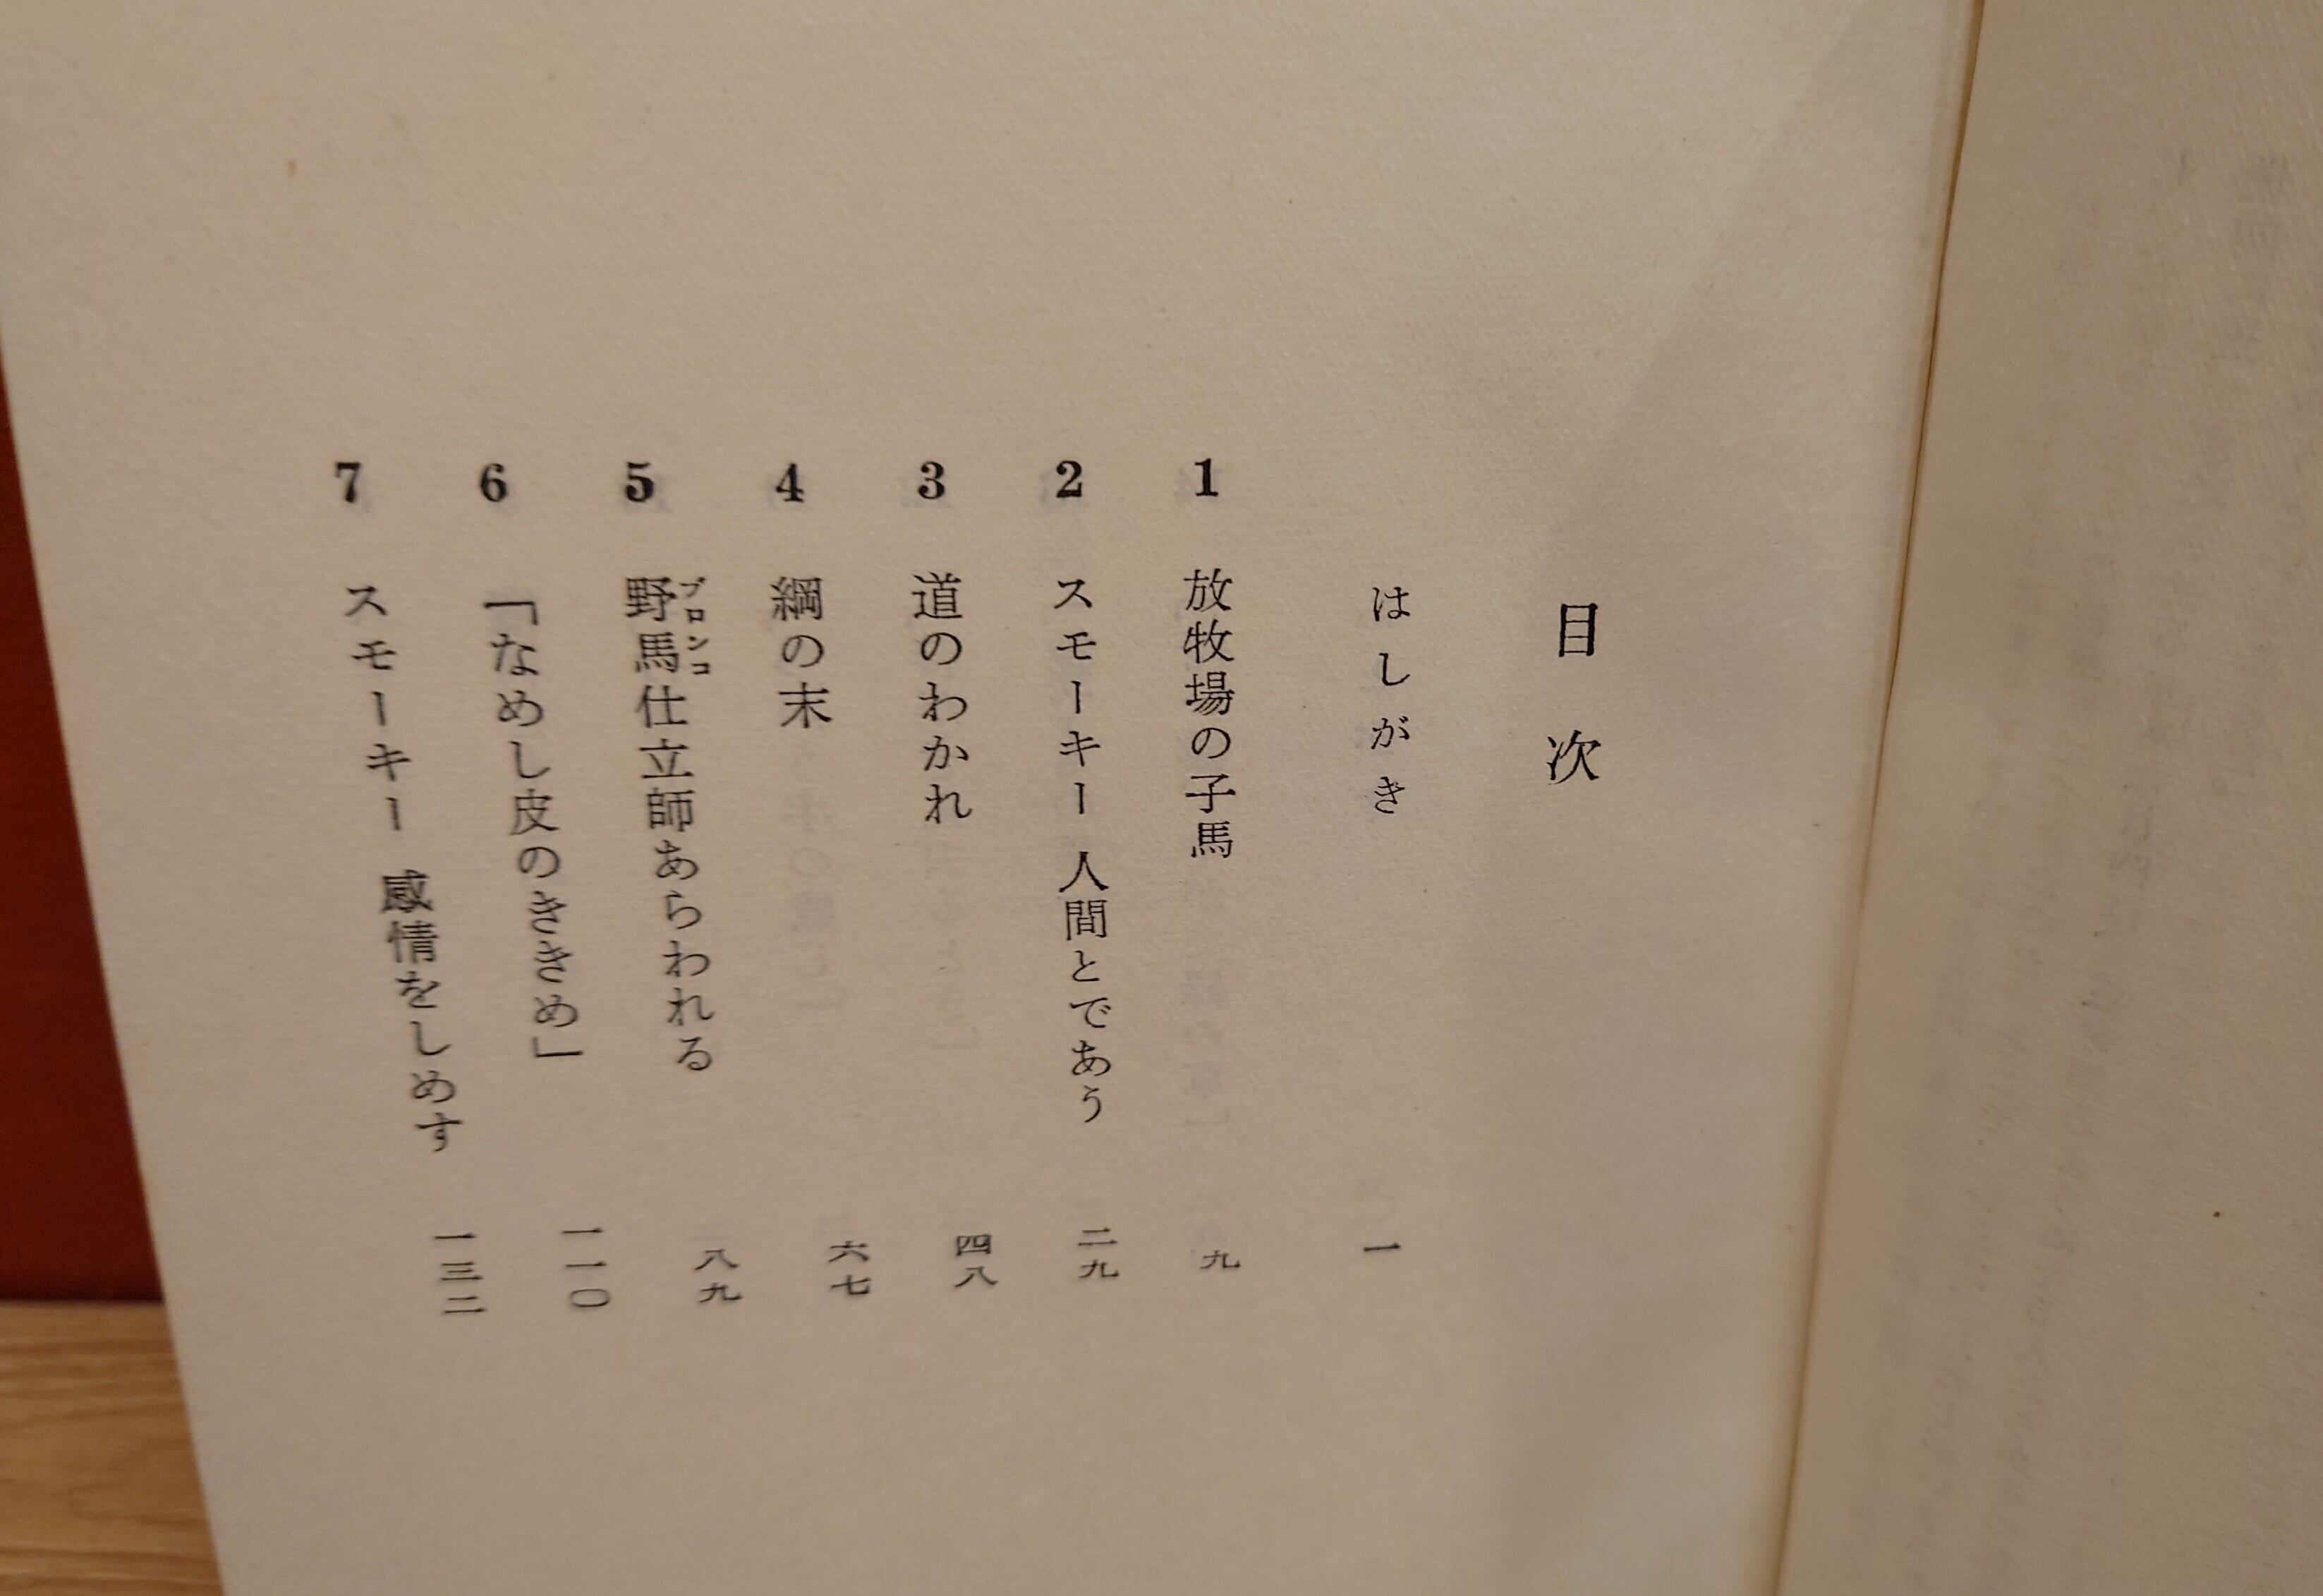 目次
はしがき 一
1 放牧場の子馬 九
2 スモーキー 人間とであう 二九
3 道のわかれ 四八
4 綱の末 六七
5 野馬仕立師あらわれる 八九
ブロンコ
6 「なめし皮のききめ」 一一〇
7 スモーキー 感情をしめす 一三二